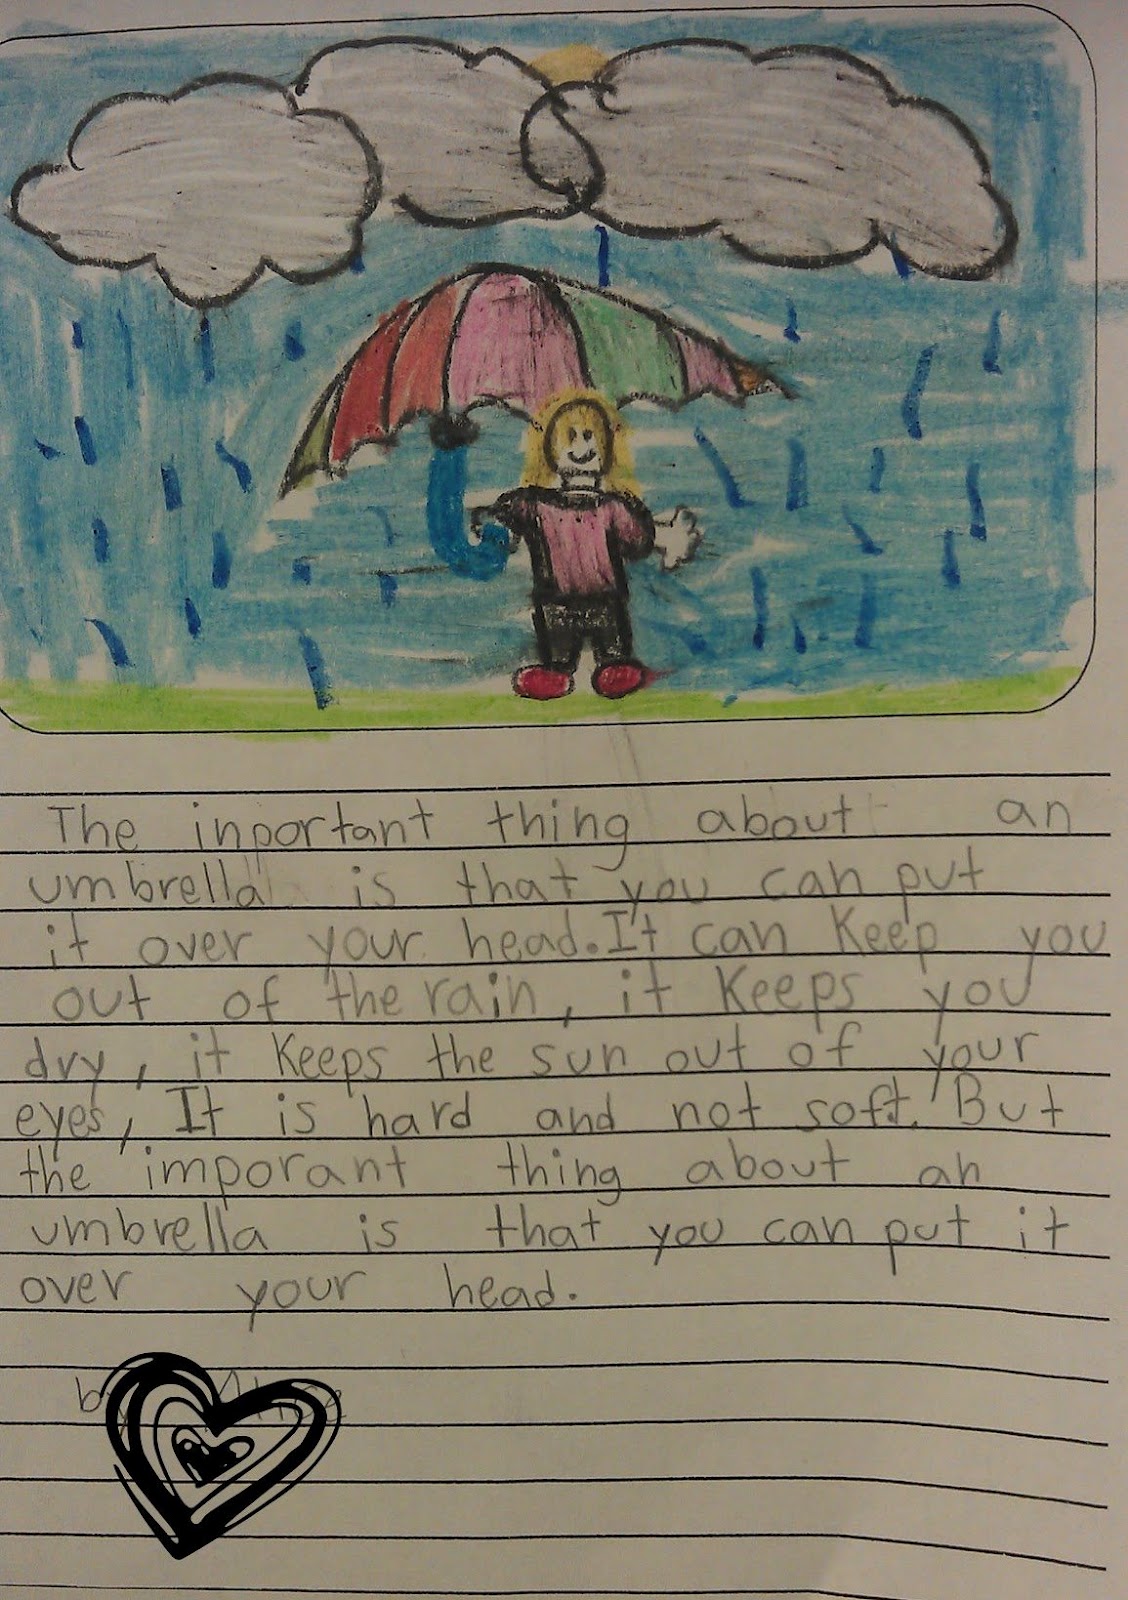 The inportant thing about an
umbrella is that you can put
it over your head. It can keep you
out of the rain, it keeps you
dry, it keeps the sun out of your
eyes, It is hard and not soft. But
the imporant thing about an
umbrella is that you can put it
over your head.
by